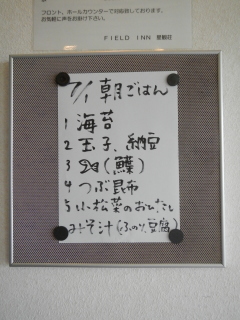 フロント、ホールカウンターで対応致しております。
お気軽に声をお掛け下さい。
FIELD INN 星観荘
7/1 朝ごはん
1 海苔
2 玉子、納豆
3 (鰈)
4 つぶ昆布
5 小松菜のおひたし
みそ汁(ふのり、豆腐)